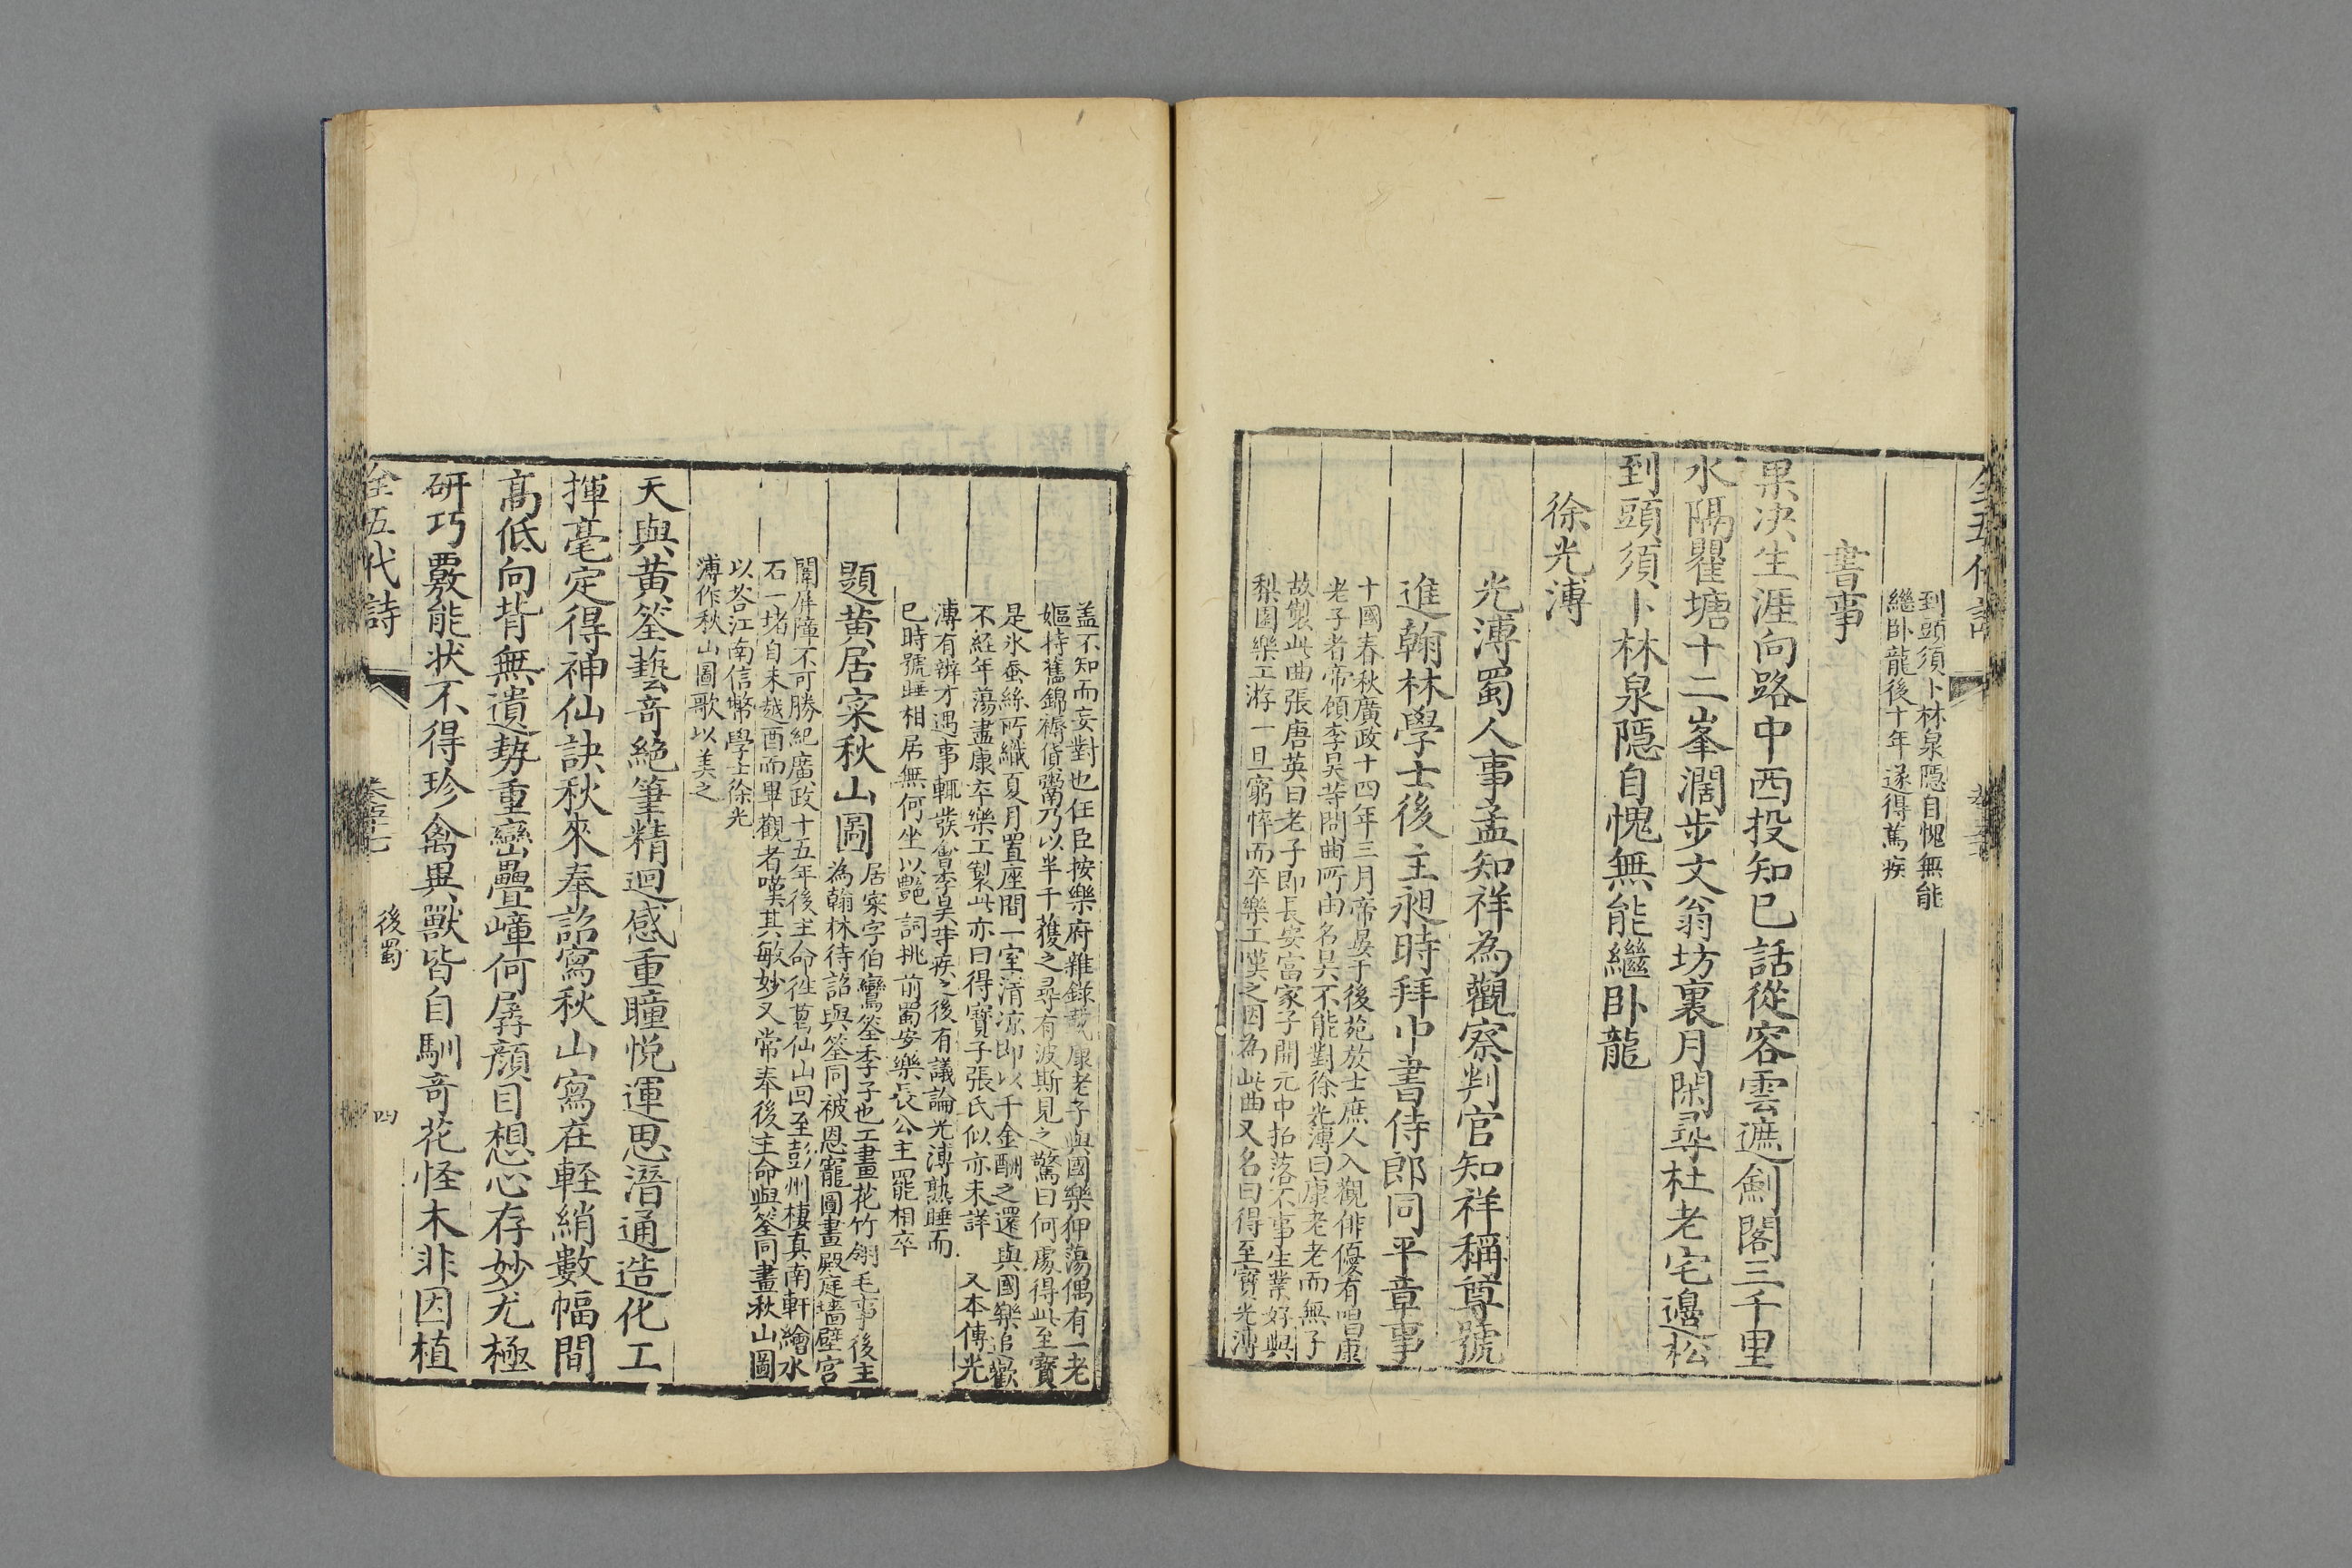 全五代詩
到頭須卜林泉隱自愧無能
繼卧龍後十年遂得篤疾
書事
果决生涯向路中西投知已話從容雲遮劍閣三千里
水隔瞿塘十二峯濶步文翁坊裏月閑尋杜老宅邊松
到頭須卜林泉隱自愧無能繼卧龍
徐光溥
光溥蜀人事孟知祥為觀察判官知祥稱尊號
進翰林學士後主昶時拜中書侍郎同平章事
十國春秋廣政十四年三月帝晏于後苑放士庶人入觀俳優有唱康
老子者帝傾李昊等問曲所由名昊不能對徐光溥曰康老老而無子
故製此曲張唐英曰老子即長安富家子開元中拓落不事生業好與
梨園樂工游一旦窮悴而卒樂工嘆之因為此曲又名曰得至寶光溥
盖不知而妄對也任臣按樂府雜錄載康老子與國樂仰蕩偶有一老
嫗持舊錦褥貨鬻乃以半千獲之尋有波斯見之驚曰何處得此至寶
是氷蚕絲所織夏月置座間一室清凉即以千金酬之還與國樂追歡
不經年蕩盡康卒樂工製此亦曰得寶子張氏似亦未詳 又本傳光
溥有辨才遇事輒發會李昊等疾之後有議論光溥熟睡而
巳時號睡相居無何坐以艷詞挑前蜀安樂長公主罷相卒
題黄居寀秋山圖
居寀字伯鸞筌季子也工畫花竹翎毛事後主
為翰林待詔與筌同被恩寵圖畫殿庭墻壁宮
闈屏障不可勝紀廣政十五年後主命徃葛仙山回至彭州棲真南軒繪水
石一堵自未越酉而畢觀者嘆其敏妙又常奉後主命與筌同畫秋山圖
以荅江南信幣學士徐光
溥作秋山圖歌以美之
天與黄筌藝竒絶筆精迴感重瞳悦運思潛通造化工
揮毫定得神仙訣秋來奉詔寫秋山寫在輕綃數幅間
高低向背無遺勢重巒疊嶂何孱顔目想心存妙尤極
研巧覈能状不得珍禽異獸皆自馴竒花怪木非因植
全五代詩
後蜀
四